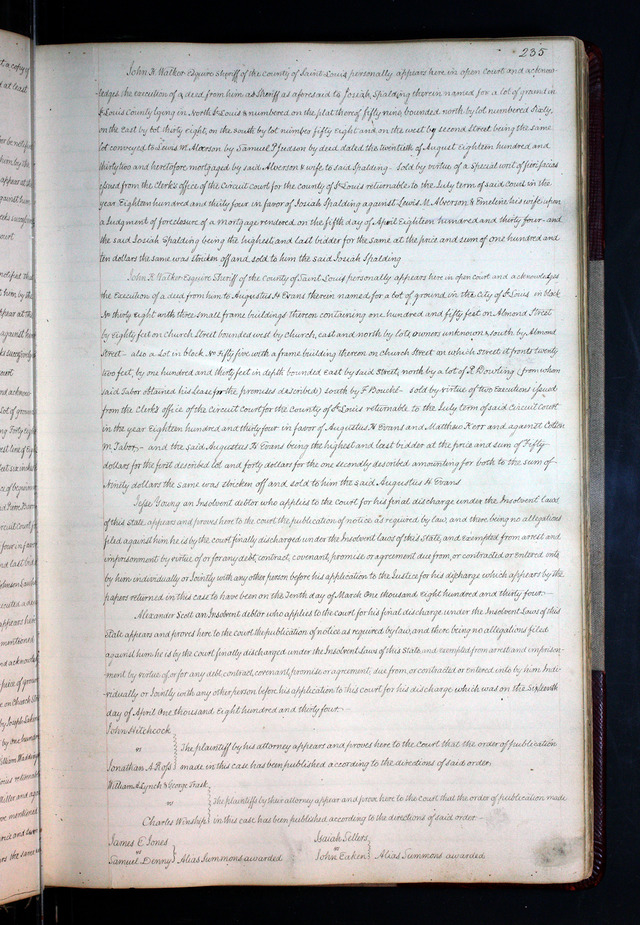 235
John R Walker Esquire Sheriff of the County of Saint Louis personally appears here in open Court and acknow-
ledges the execution of a deed from him as Sheriff as aforesaid to Josiah Spalding therein named for a lot of ground in
St Louis County lying in North St Louis & numbered on the plat thereof fifty nine, bounded north by lot numbered Sixty,
on the East by lot thirty eight, on the South by lot number fifty eight and on the west by second Street being the same
lot conveyed to Lewis M. Alverson by Samuel Judson by deed dated the twentieth of August Eighteen hundred and
thirty two and heretofore mortgaged by said Alverson & wife to said Spalding – Sold by virtue of a Special writ of fieri facias
issued from the Clerk's office of the Circuit Court for the county of St Louis returnable to the July term of said Court in the
year Eighteen hundred and thirty four in favor of Josiah Spalding against Lewis M. Alverson & Emeline his wife upon
a Judgment of foreclosure of a mortgage rendered on the fifth day of April Eighteen hundred and thirty four – and
the said Josiah Spalding being the highest and last bidder for the same at the price and sum of one hundred and
ten dollars the same was stricken off and sold to him the said Josiah Spalding
John R Walker Esquire Sheriff of the County of Saint Louis personally appears here in open court and acknowledges
the Execution of a deed from him to Augustus H Evans therein named for a lot of ground in the City of St Louis in block
No thirty eight with three small frame buildings thereon containing one hundred and fifty feet on Almond Street
by Eighty feet on Church Street bounded west by Church, east and north by lots, owners unknown & south by Almond
Street – also a Lot in block No Fifty five with a frame building thereon on Church Street on which Street it fronts twenty
two feet, by one hundred and thirty feet in depth bounded east by said Street, north by a lot of R Dowling (from whom
said Tabor obtained his Lease for the premises described) south by F Bouché – sold by virtue of two Executions issued
from the Clerk's office of the Circuit Court for the County of St Louis returnable to the July term of said Circuit Court
in the year Eighteen hundred and thirty four in favor of Augustus H Evans and Matthew Kerr and against
M Tabor, – and the said Augustus H Evans being the highest and last bidder at the price and sum of Fifty
dollars for the first described lot and forty dollars for the one secondly described amounting for both to the sum of
Ninity dollars the same was stricken off and sold to him the said Augustus H Evans
Jesse Young an Insolvent debtor who applies to the Court for his final discharge under the Insolvent laws
of this State, appears and proves here to the court the publication of notice as required by law, and there being no allegations
filed against him he is by the court finally discharged under the Insolvent laws of this State, and exempted from arrest and
imprisonment by virtue of or for any debt, contract, covenant, promise or agreement due from, or contracted or Entered into
by him individually or Jointly with any other person before his application to the Justice for his discharge which appears by the
papers returned in this case to have been on the Tenth day of March One thousand Eight hundred and thirty four. –
Alexander Scott an Insolvent debtor who applies to the court for his final discharge under the Insolvent Laws of this
State appears and proves here to the court the publication of notice as required by law, and there being no allegations filed
against him he is by the court finally discharged under the Insolvent Laws of this State and exempted from arrest and imprison-
ment by virtue of or for any debt, contract, covenant, promise or agreement, due from, or contracted or entered into by him Indi-
vidually or Jointly with any other person, before his application to this court for his discharge which was on the Sixteenth
day of April One thousand Eight hundred and thirty four. –
John Hitchcock
vs The plaintiff by his attorney appears and proves here to the Court that the order of publication
Jonathan A Ross made in this case has been published according to the directions of said order,
William A Lynch & George Trask
vs The plaintiffs by their attorney appear and prove here to the court that the order of publication made
Charles Winship in this case has been published according to the directions of said order –
James E Jones
vs
Samuel Denny Alias Summons awarded
Isaiah Sellers
vs
John Eaken Alias Summons awarded